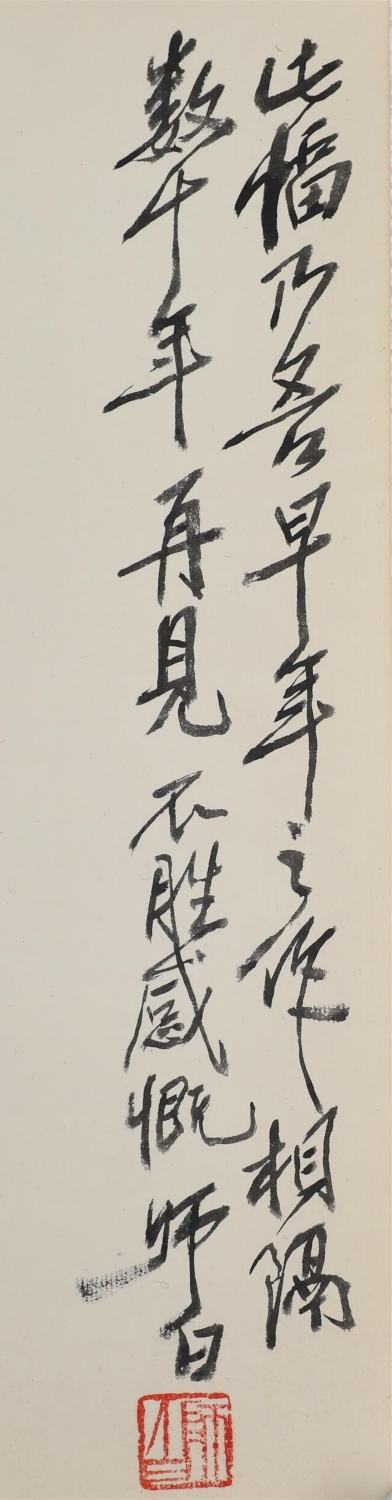 此幅乃吾早年之作相隔
数十年再見不胜感慨师白
師白